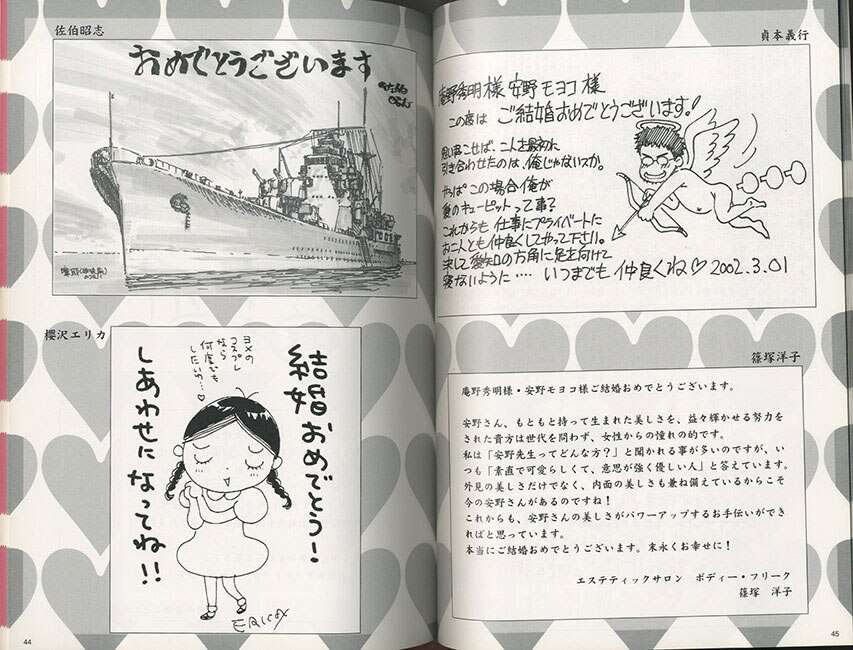 佐伯昭志
おめでとうございます
櫻沢エリカ
結婚おめでとう!
ヨメの
コスプレ
なら
何度でも
したいわ…♡
しあわせになってね!!
ERICA
44
貞本義行
庵野秀明様 安野モヨコ様
この度は ご結婚おめでとうございます!
思い起こせば、二人を最初に
引き合わせたのは、俺じゃないスか。
やっぱこの場合俺が
愛のキューピットって事?
これからも 仕事にプライベートに
お二人とも仲良くしてやって下さい。
決して愛知の方角に足を向けて
寝ないように…… いつまでも 仲良くね♡ 2002.3.01
篠塚洋子
庵野秀明様・安野モヨコ様ご結婚おめでとうございます。
安野さん、もともと持って生まれた美しさを、益々輝かせる努力を
された貴方は世代を問わず、女性からの憧れの的です。
私は「安野先生ってどんな方?」と聞かれる事が多いのですが、い
つも「素直で可愛らしくて、意思が強く優しい人」と答えています。
外見の美しさだけでなく、内面の美しさも兼ね備えているからこそ
今の安野さんがあるのですね!
これからも、安野さんの美しさがパワーアップするお手伝いができ
ればと思っています。
本当にご結婚おめでとうございます。末永くお幸せに!
エステティックサロン ボディー・フリーク
篠塚 洋子
45